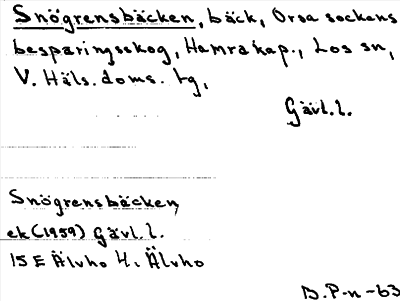 Snögrensbäcken, bäck, Orsa sockens
besparingsskog, Hamra kap., Los sn,
V. Häls. doms. tg,
Gävl.l.
Snögrensbäcken,
ek(1959) Gävl.l.
15 E Älvho 4. Älvho
B.P-n -63